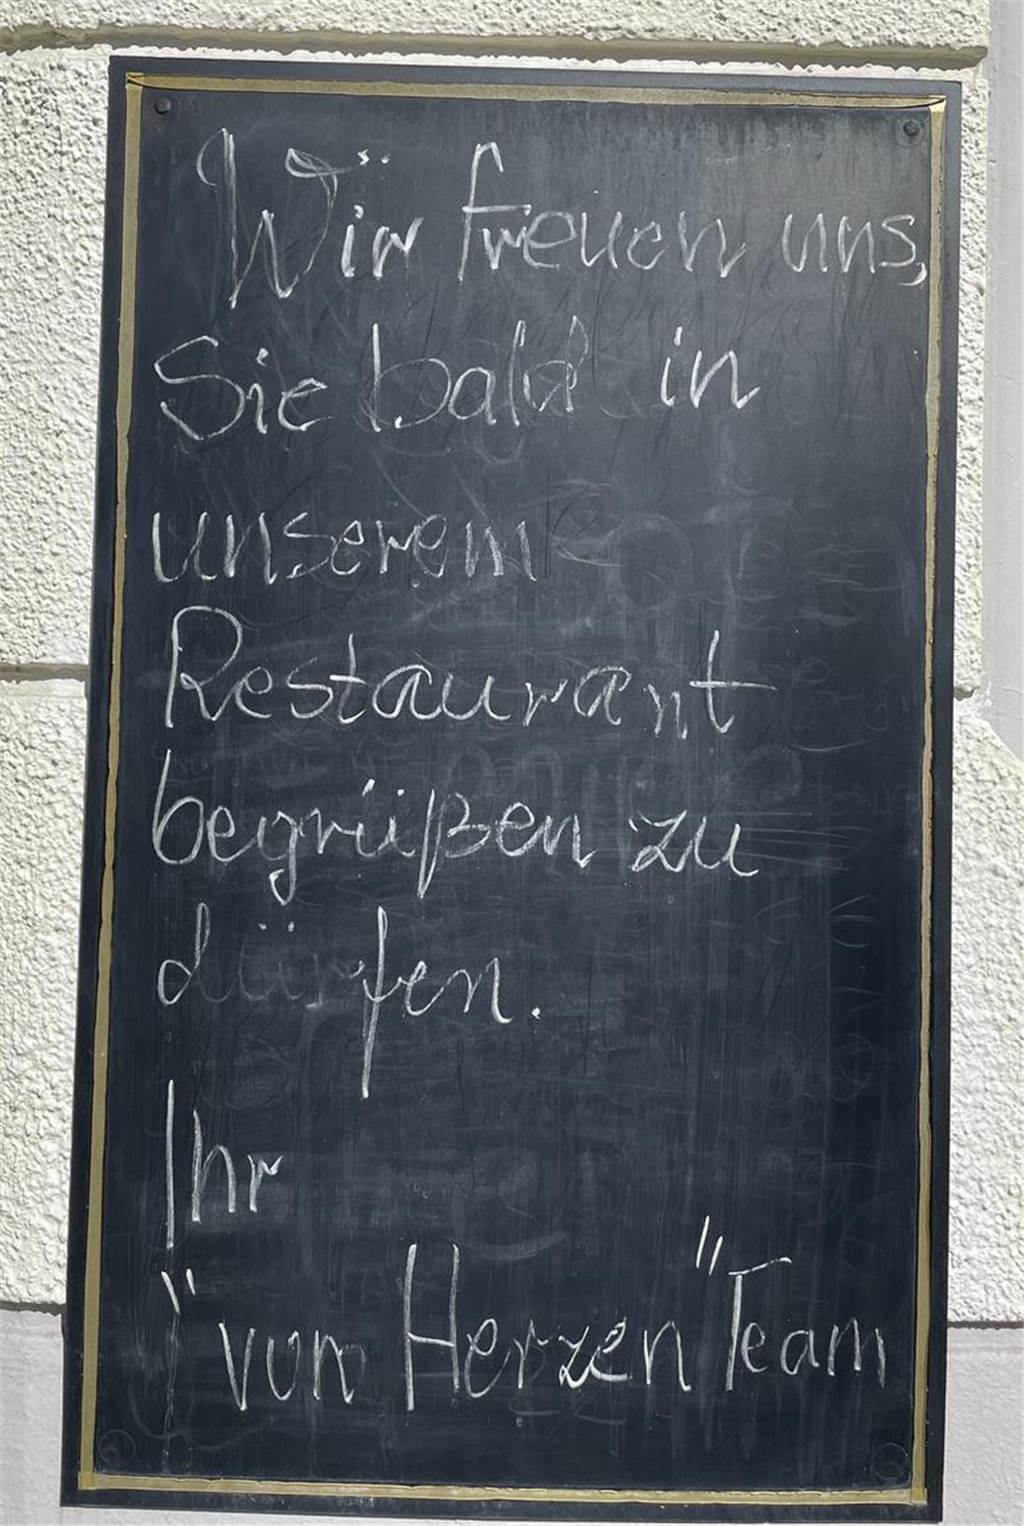 Wir freuen uns,
Sie bald in
unserem
Restaurant
begrüßen zu
dürfen.
Ihr
"von Herzen" Team